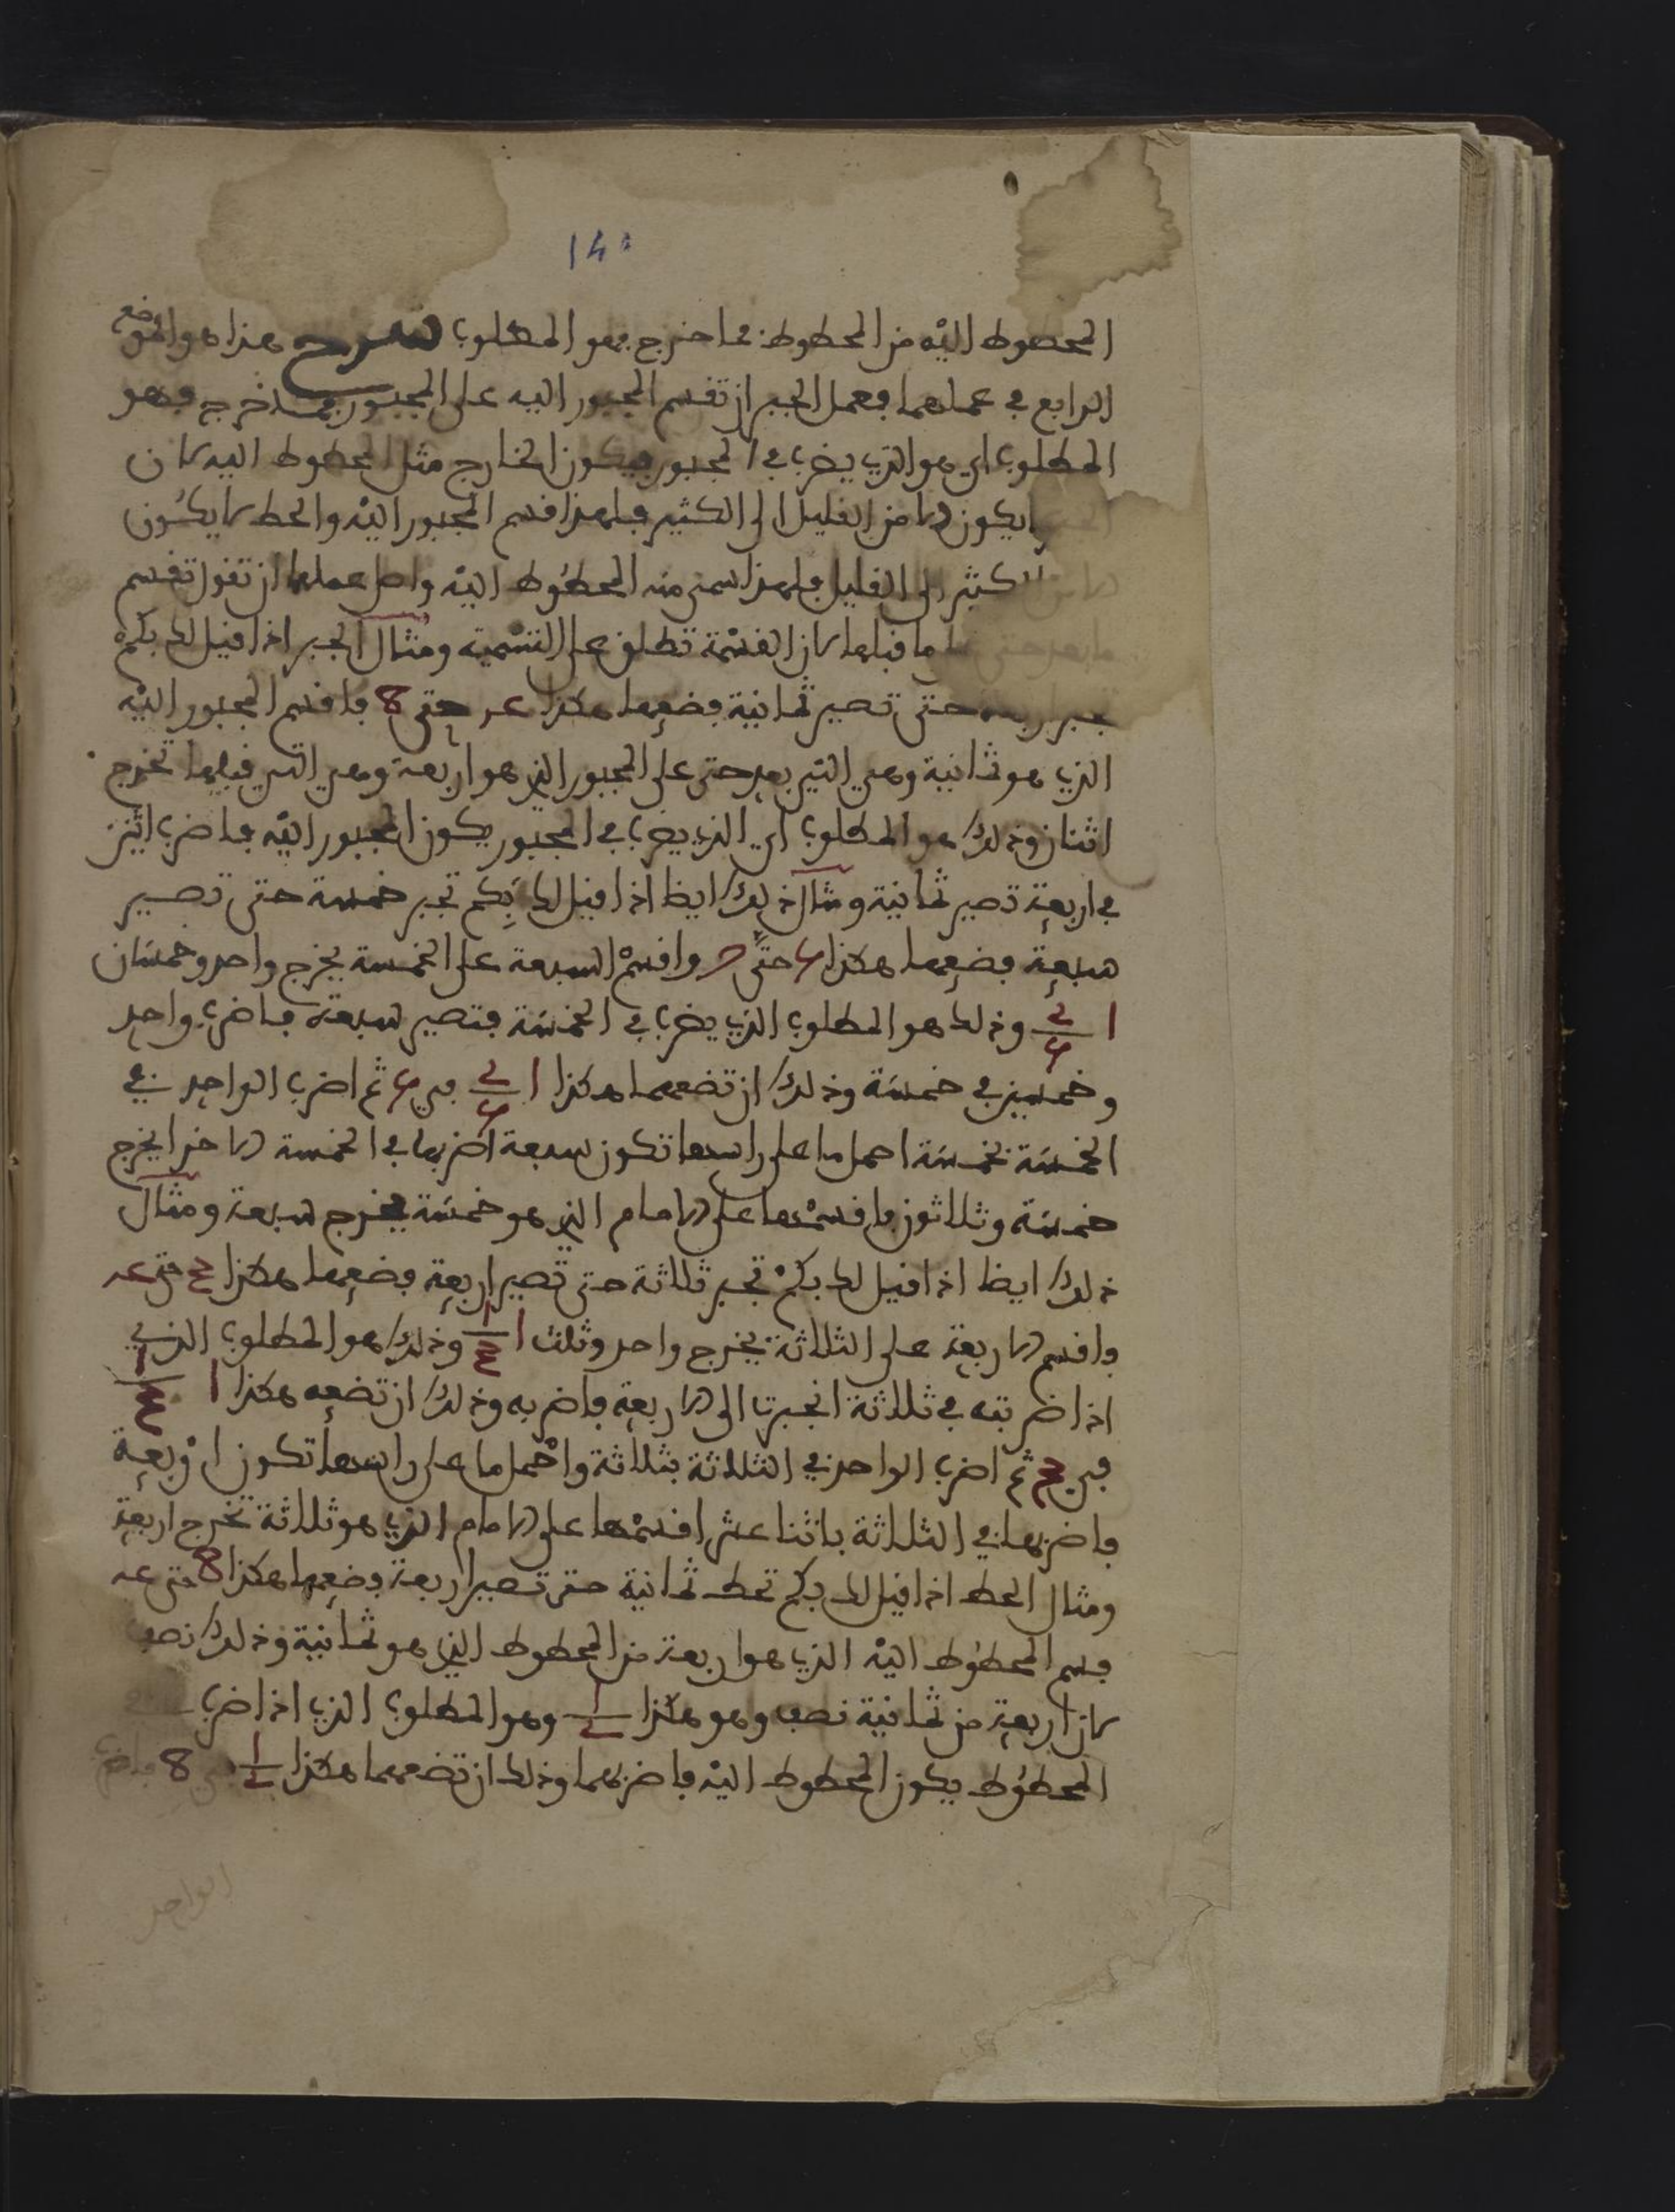 140
المحطوط اليه من المحطوط فما خرج فهو المطلوب شرح هذا هو الموضع
الرابع في عملهما فعمل الجبر ان تقسم المجبور اليه على المجبور فما خرج فهو
المطلوب اي هو الذي يضرب في المجبور فيكون الخارج مثل المحطوط اليه لان
يكون الا من القليل الى الكثير فلهذا قسم المجبور اليه والحط لا يكون
الكثير الى القليل فلهذا سمي منه المحطوط اليه واصل عملها ان تقول تقسم
ما بعد حتى على ما قبلها لان القسمة تطلق على التسمية ومثال الجبر اذا قيل لك بكم
تجبر اربعة حتى تصير ثمانية فضعهما هكذا 4 حتى 8 فاقسم المجبور اليه
الذي هو ثمانية وهي التي بعد حتى على المجبور الذي هو اربعة وهي التي قبلها تخرج
اثنان وذلك هو المطلوب اي الذي يضرب في المجبور يكون المجبور اليه فاضرب اثنين
في اربعة تصير ثمانية ومثال ذلك ايظا اذا قيل لك بكم تجبر خمسة حتى تصير
سبعة فضعهما هكذا 5 حتى 7 واقسم السبعة على الخمسة يخرج واحد وخمسان
1 2/5 وذلك هو المطلوب الذي يضرب في الخمسة فتصير سبعة فاضرب واحد
وخمسين في خمسة وذلك ان تضعهما هكذا 1 2/5 في 5 ثم اضرب الواحد في
الخمسة بخمسة احمل ما على راسها تكون سبعة اضربها في الخمسة الاخرا يخرج
خمسة وثلاثون فاقسمها على الامام الذي هو خمسة يخرج سبعة ومثال
ذلك ايظا اذا قيل لك بكم تجبر ثلاثة حتى تصير اربعة فضعهما هكذا 3 حتى 4
واقسم الاربعة على الثلاثة يخرج واحد وثلث 1 1/3 وذلك هو المطلوب الذي
اذا ضربته في ثلاثة انجبرت الى الاربعة فاضربه وذلك ان تضعه هكذا 1 1/3
في 3 ثم اضرب الواحد في الثلاثة بثلاثة واحمل ما على راسها تكون اربعة
فاضربها في الثلاثة باثنا عشر اقسمها على الامام الذي هو ثلاثة تخرج اربعة
ومثال الحط اذا قيل لك بكم تحط ثمانية حتى تصير اربعة فضعهما هكذا 8 حتى 4
فسم المحطوط اليه الذي هو اربعة من المحطوط الذي هو ثمانية وذلك نصف
لان اربعة من ثمانية نصف وهو هكذا 1/2 وهو المطلوب الذي اذا ضرب
المحطوط يكون المحطوط اليه فاضربهما وذلك ان تضعهما هكذا 1/2 في 8 فاضرب
الواحد